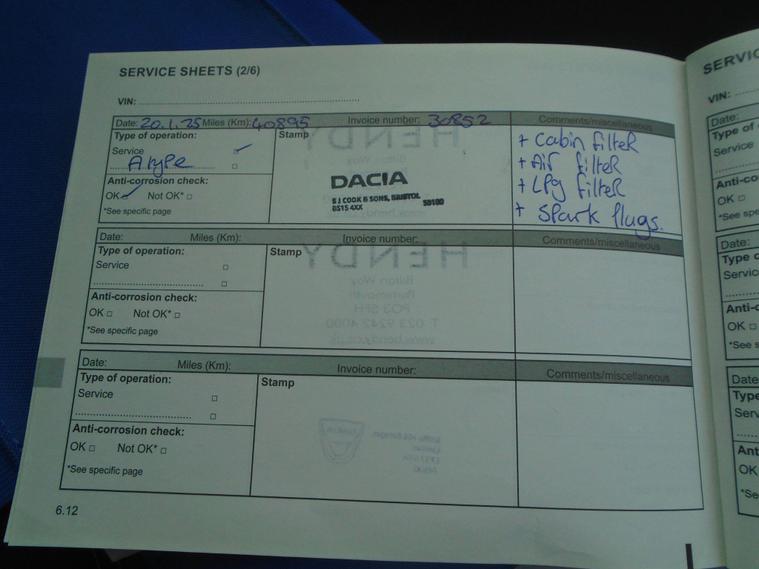 SERVICE SHEETS (2/6)
VIN:
Date: 20.1.25 Miles (Km): 40895 Invoice number: 30852 Comments/miscellaneous
Type of operation:
Service
A type
Anti-corrosion check:
OK Not OK*
*See specific page
Stamp
DACIA
S J COOK & SONS, BRISTOL
BS15 4XX 59180
+ Cabin filter
+ Air filter
+ LPg filter
+ Spark plugs.
Date: Miles (Km): Invoice number: Comments/miscellaneous
Type of operation:
Service
Anti-corrosion check:
OK Not OK*
*See specific page
Stamp
HENDY
Bilton Way
Portsmouth
PO3 5FH
T. 023 9242 4000
www.hendy.co.uk
Date: Miles (Km): Invoice number: Comments/miscellaneous
Type of operation:
Service
Anti-corrosion check:
OK Not OK*
*See specific page
Stamp
6.12
SERVIC
VIN:
Date:
Type of
Service
Anti-co
OK
*See sp
Date:
Type o
Servic
Anti-
OK
*See
Date
Type
Serv
Ant
OK
*Se